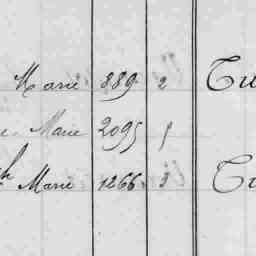 Marie 889 2 Tu
Marie 2095 1
Marie 1266 3 Tu